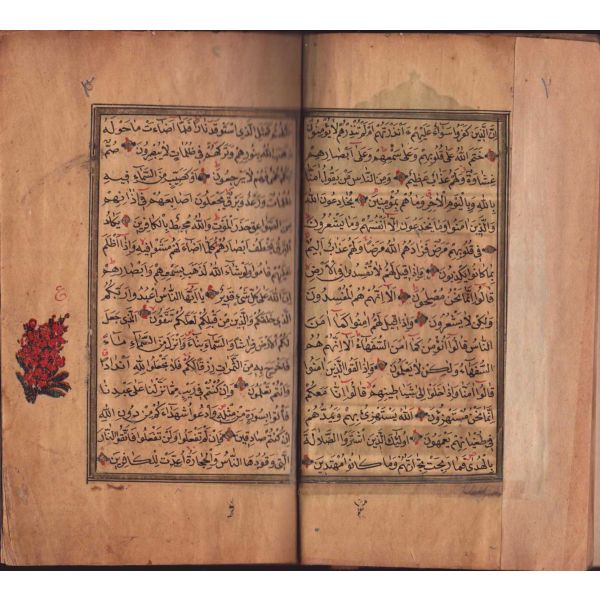 ٢
ان الذين كفروا سواء عليهم ءانذرتهم ام لم تنذرهم لا يؤمنون
ختم الله على قلوبهم وعلى سمعهم وعلى ابصارهم
غشاوة ولهم عذاب عظيم ومن الناس من يقول امنا
بالله وباليوم الاخر وما هم بمؤمنين يخادعون الله
والذين امنوا وما يخدعون الا انفسهم وما يشعرون
في قلوبهم مرض فزادهم الله مرضا ولهم عذاب اليم
بما كانوا يكذبون واذا قيل لهم لا تفسدوا في الارض
قالوا انما نحن مصلحون الا انهم هم المفسدون
ولكن لا يشعرون واذا قيل لهم امنوا كما امن
الناس قالوا انؤمن كما امن السفهاء الا انهم هم
السفهاء ولكن لا يعلمون واذا لقوا الذين امنوا
قالوا امنا واذا خلوا الى شياطينهم قالوا انا معكم
انما نحن مستهزؤن الله يستهزئ بهم ويمدهم
في طغيانهم يعمهون اولئك الذين اشتروا الضلالة
بالهدى فما ربحت تجارتهم وما كانوا مهتدين
٣
مثلهم كمثل الذي استوقد نارا فلما اضاءت ما حوله
ذهب الله بنورهم وتركهم في ظلمات لا يبصرون صم
بكم عمي فهم لا يرجعون او كصيب من السماء فيه
ظلمات ورعد وبرق يجعلون اصابعهم في اذانهم
من الصواعق حذر الموت والله محيط بالكافرين يكاد
البرق يخطف ابصارهم كلما اضاء لهم مشوا فيه واذا اظلم
عليهم قاموا ولو شاء الله لذهب بسمعهم وابصارهم
ان الله على كل شيء قدير يا ايها الناس اعبدوا ربكم
الذي خلقكم والذين من قبلكم لعلكم تتقون الذي جعل
لكم الارض فراشا والسماء بناء وانزل من السماء ماء
فاخرج به من الثمرات رزقا لكم فلا تجعلوا لله اندادا
وانتم تعلمون وان كنتم في ريب مما نزلنا على عبدنا
فأتوا بسورة من مثله وادعوا شهداءكم من دون الله
ان كنتم صادقين فان لم تفعلوا ولن تفعلوا فاتقوا النار
التي وقودها الناس والحجارة اعدت للكافرين
ع